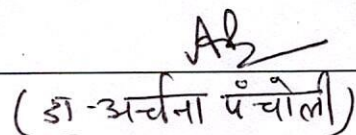 (डा -अर्चना पंचोली)